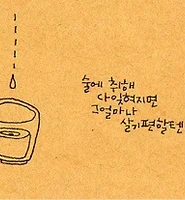 술에 취해
다 잊혀지면
그얼마나
살기편할텐